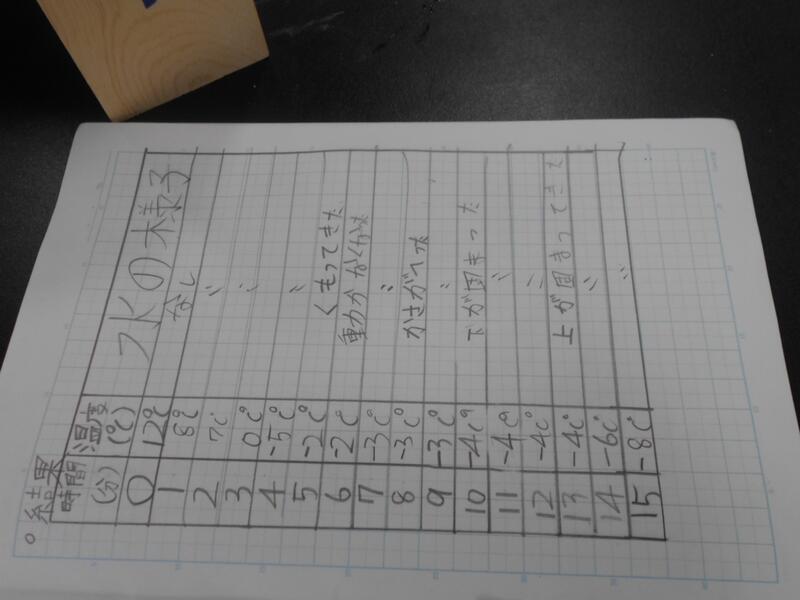 。結果
時間(分) 温度(℃) 水の様子
0 12℃
1 8℃ なし
2 7℃ 〃
3 0℃ 〃
4 -5℃ 〃
5 -2℃ くもってきた
6 -2℃
7 -3℃ 〃
8 -3℃ かさがへった
9 -3℃ 〃
10 -4℃ 下が固まった
11 -4℃ 〃
12 -4℃ 〃
13 -4℃ 上が固まってきた
14 -6℃ 〃
15 -8℃ 〃